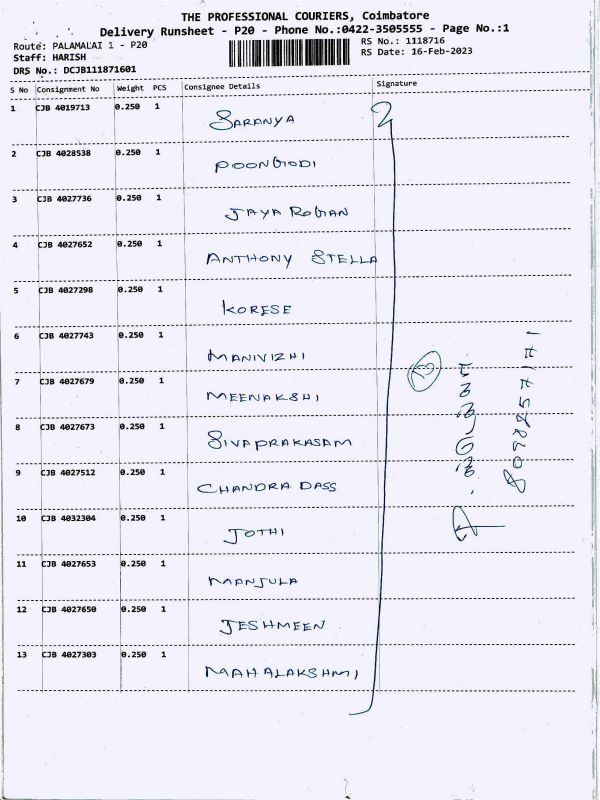 THE PROFESSIONAL COURIERS, Coimbatore
Delivery Runsheet - P20 - Phone No.:0422-3505555 - Page No.:1
Route: PALAMALAI 1 - P20
RS No.: 1118716
Staff: HARISH
RS Date: 16-Feb-2023
DRS No.: DCJB111871601
S No Consignment No Weight PCS Consignee Details Signature
1 CJB 4019713 0.250 1 SARANYA
2 CJB 4028538 0.250 1 POONGODI
3 CJB 4027736 0.250 1 JAYA ROGAN
4 CJB 4027652 0.250 1 ANTHONY STELLA
5 CJB 4027298 0.250 1 KORESE
6 CJB 4027743 0.250 1 MANIVIZHI
7 CJB 4027679 0.250 1 MEENAKSHI
8 CJB 4027673 0.250 1 SIVAPRAKASAM
9 CJB 4027512 0.250 1 CHANDRA DASS
10 CJB 4032304 0.250 1 JOTHI
11 CJB 4027653 0.250 1 MANJULA
12 CJB 4027650 0.250 1 JESHMEEN
13 CJB 4027303 0.250 1 MAHALAKSHMI
13
8098257171